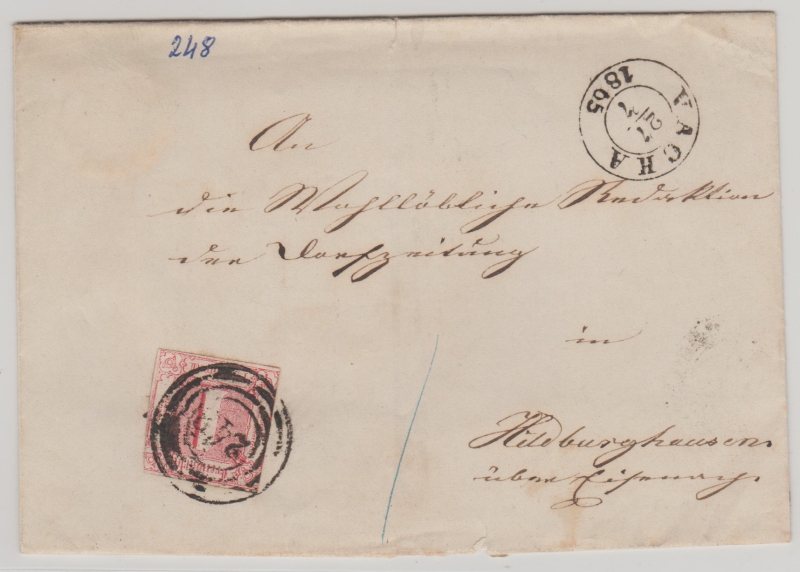 248
VACHA
27/7
1865
An
die Wohllöbliche Redaktion
der Dorfzeitung
in
Hildburghausen
über Eisenach